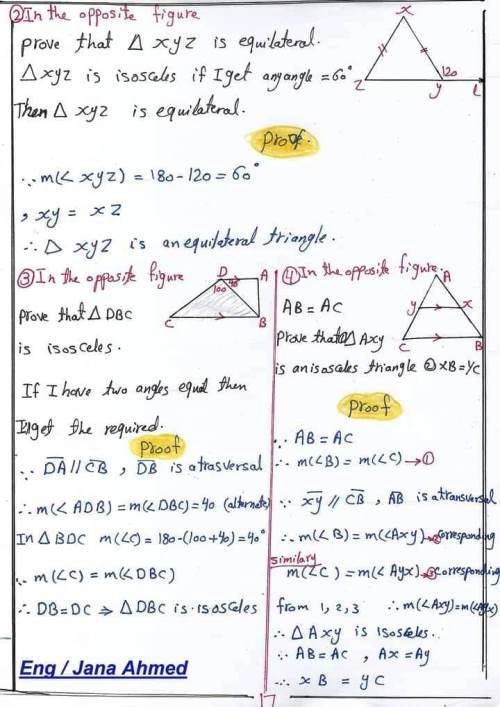 ② In the opposite figure
prove that Δ xyz is equilateral.
Δ xyz is isosceles if I get any angle = 60°
Then Δ xyz is equilateral.
x
z
y
120
l
proof.
∵ m(∠ xyz) = 180 - 120 = 60°
, xy = xz
∴ Δ xyz is an equilateral triangle.
③ In the opposite figure
prove that Δ DBC
is isosceles.
D
A
100
40
C
B
If I have two angles equal then
I get the required.
proof
∵ DA // CB , DB is a trasversal
∴ m(∠ ADB) = m(∠ DBC) = 40 (alternate)
In Δ BDC m(∠C) = 180 - (100+40) = 40°
∴ m(∠C) = m(∠DBC)
∴ DB = DC ⇒ Δ DBC is isosceles
④ In the opposite figure.
AB = AC
Prove that ① Δ Axy
is an isosceles triangle ② xB = yC
A
y
x
C
B
proof
∵ AB = AC
∴ m(∠B) = m(∠C) → ①
∵ xy // CB , AB is a transversal
∴ m(∠B) = m(∠Axy) → ② corresponding
similary
m(∠C) = m(∠Ayx) → ③ corresponding
from 1, 2, 3 ∴ m(∠Axy) = m(∠Ayx)
∴ Δ Axy is isosceles.
∵ AB = AC , Ax = Ay
∴ xB = yC
Eng / Jana Ahmed
17